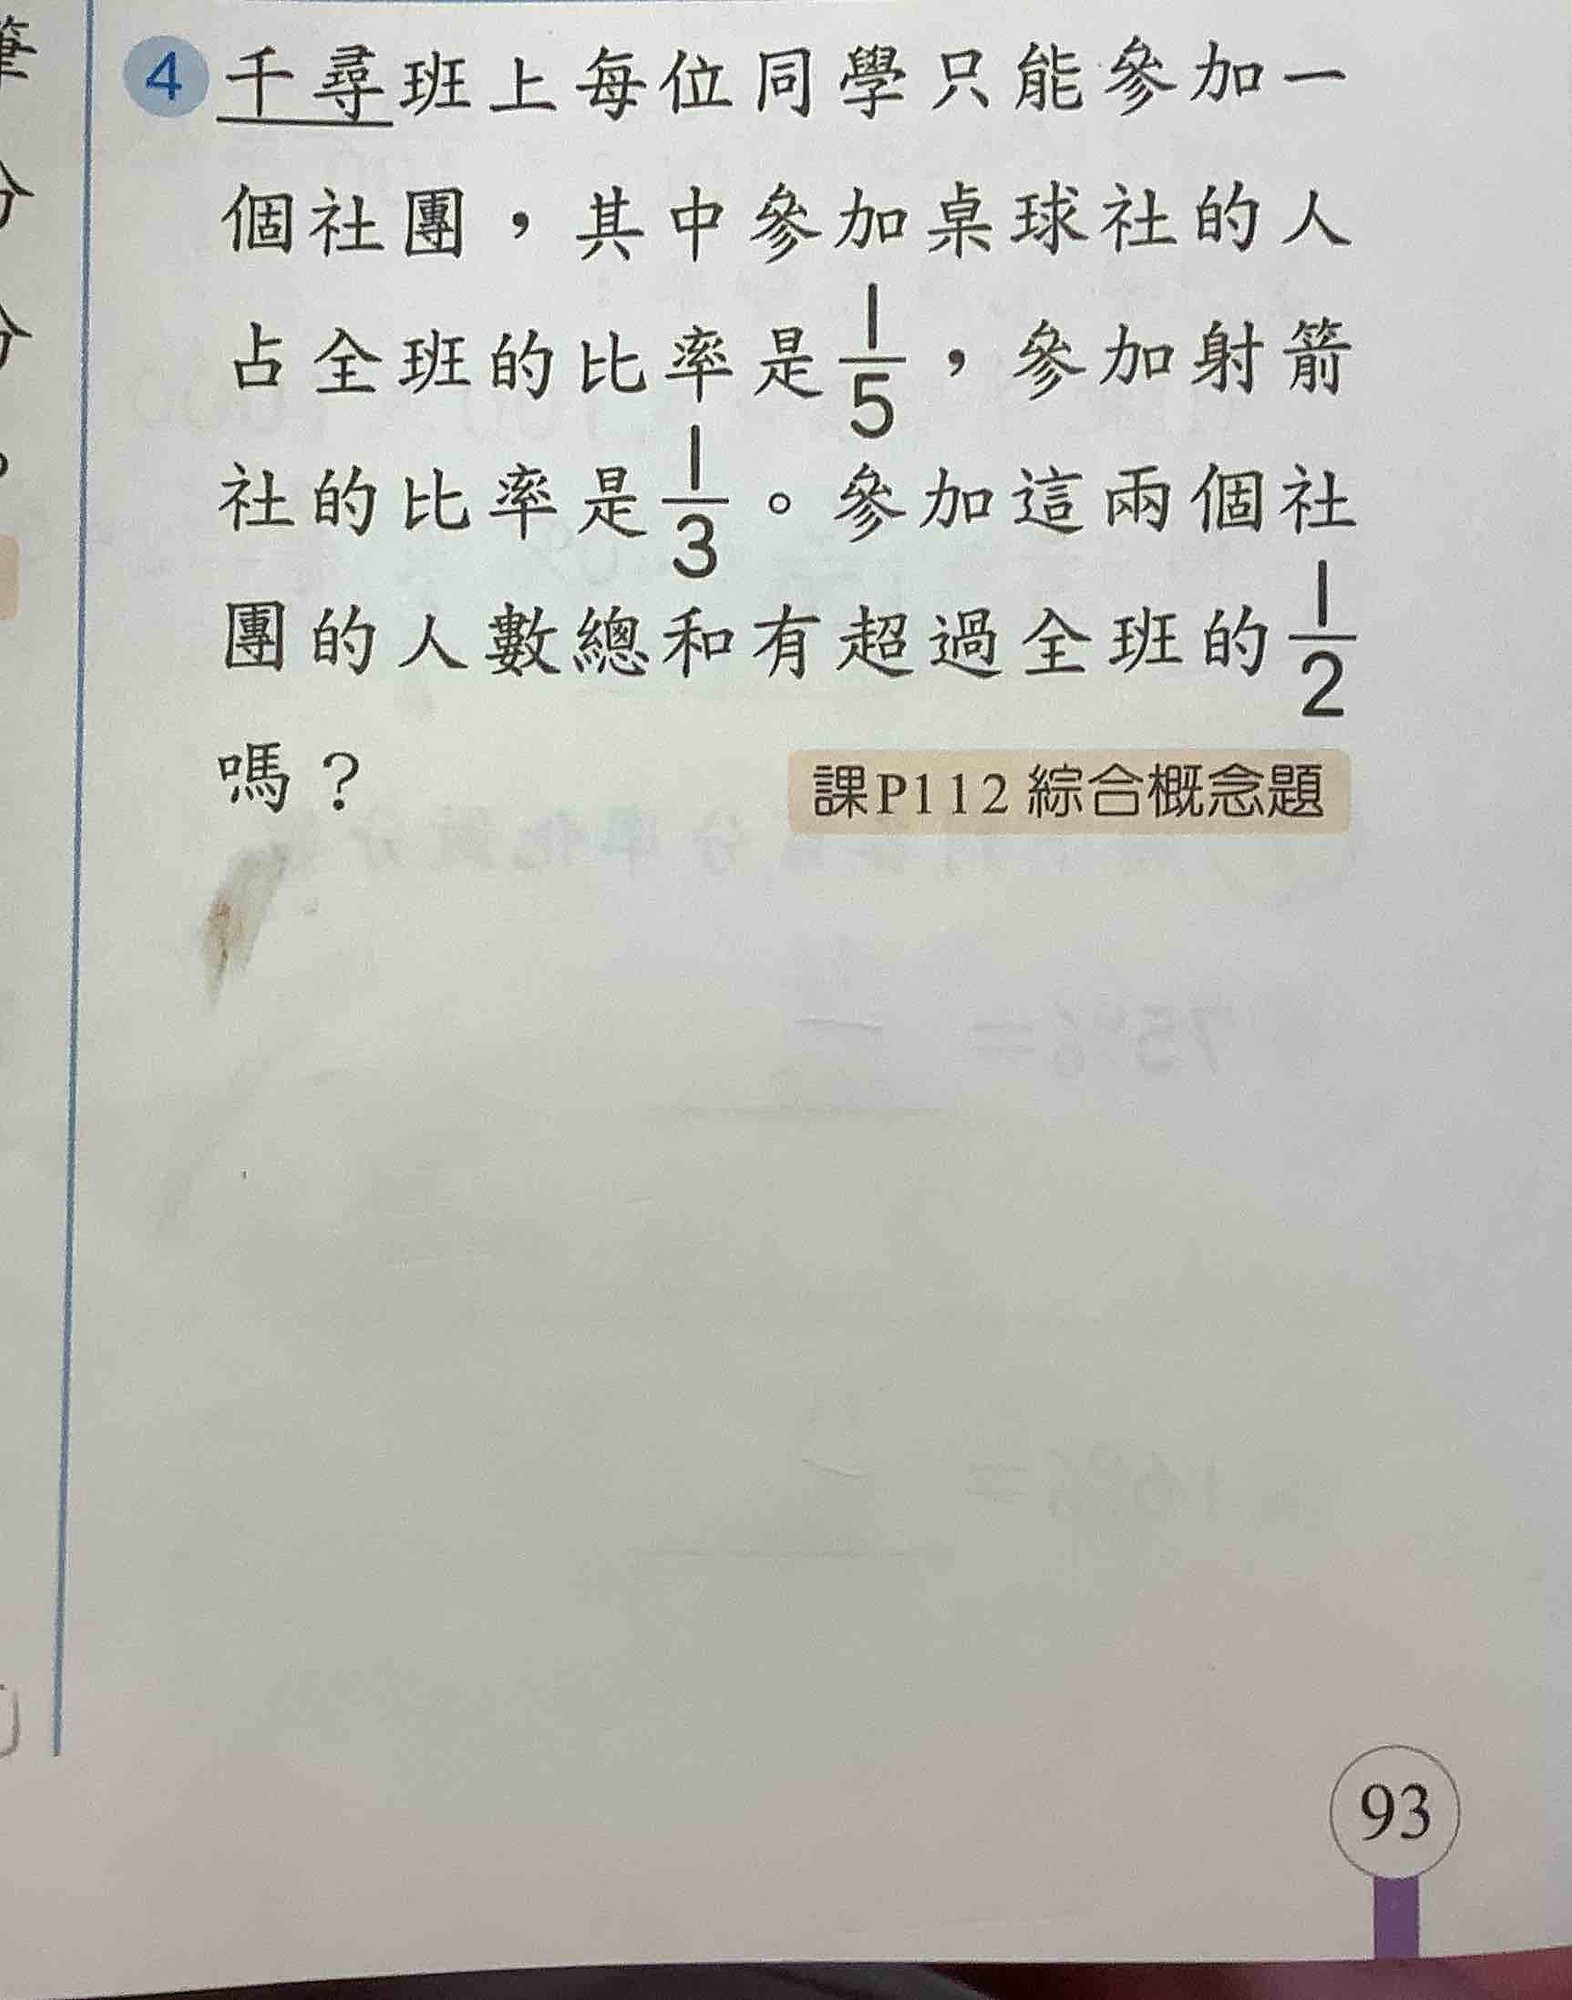 4 千尋班上每位同學只能參加一
個社團，其中參加桌球社的人
占全班的比率是1/5，參加射箭
社的比率是1/3。參加這兩個社
團的人數總和有超過全班的1/2
嗎？
課P112 綜合概念題
93